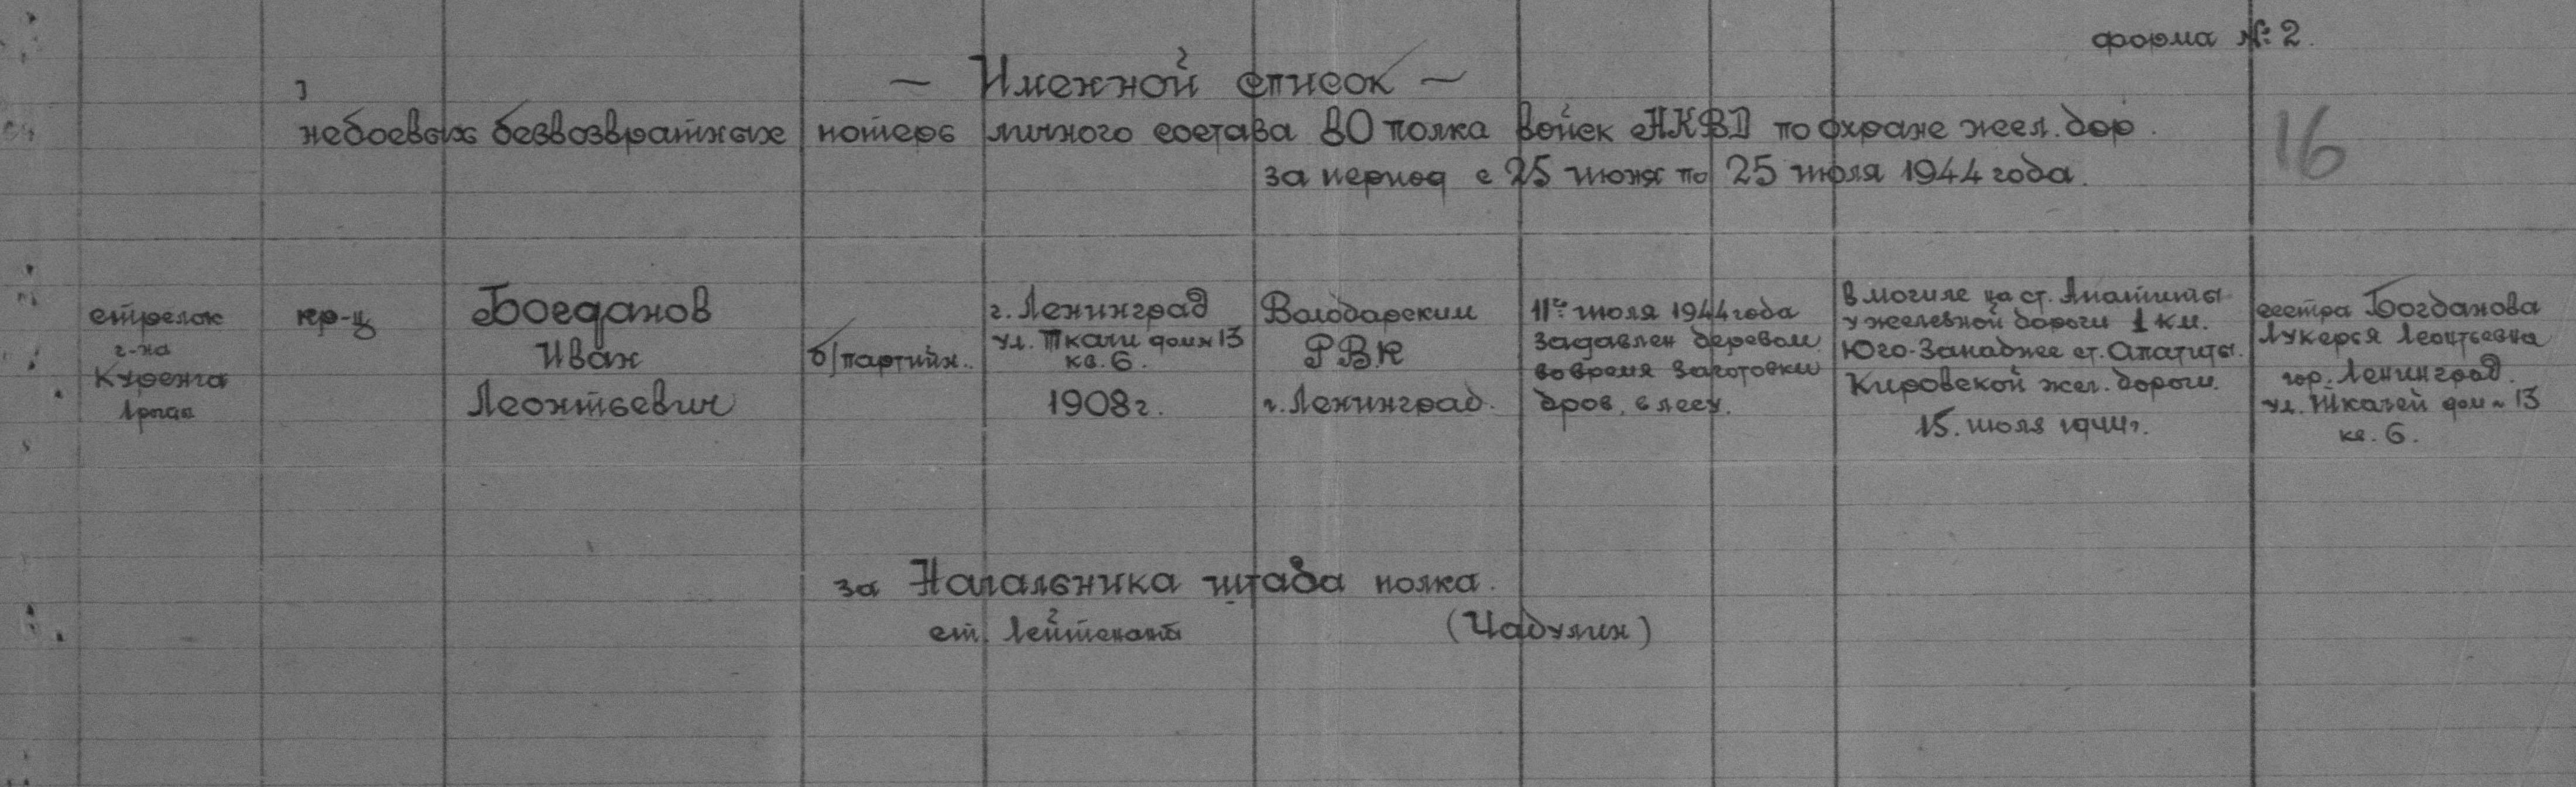 форма № 2.
Именной список
небоевых безвозвратных потерь личного состава 80 полка войск НКВД по охране жел. дор.
за период с 25 июня по 25 июля 1944 года.
16
стрелок
г-на
кр-ц
Богданов
Иван
Леонтьевич
б/партийн.
г. Ленинград
ул. Ткачи дом № 13
кв. 6.
1908 г.
Володарским
РВК
г. Ленинград.
11го июля 1944 года
задавлен деревом
во время заготовки
дров, в лесу.
в могиле на ст. Апатиты
у железной дороги 1 км.
Юго-Западнее ст. Апатиты.
Кировской жел. дороги.
15. июля 1944 г.
сестра Богданова
Лукерья Леонтьевна
гор. Ленинград.
ул. Ткачей дом № 13
кв. 6.
за Начальника штаба полка.
ст. лейтенант (Чадулин)